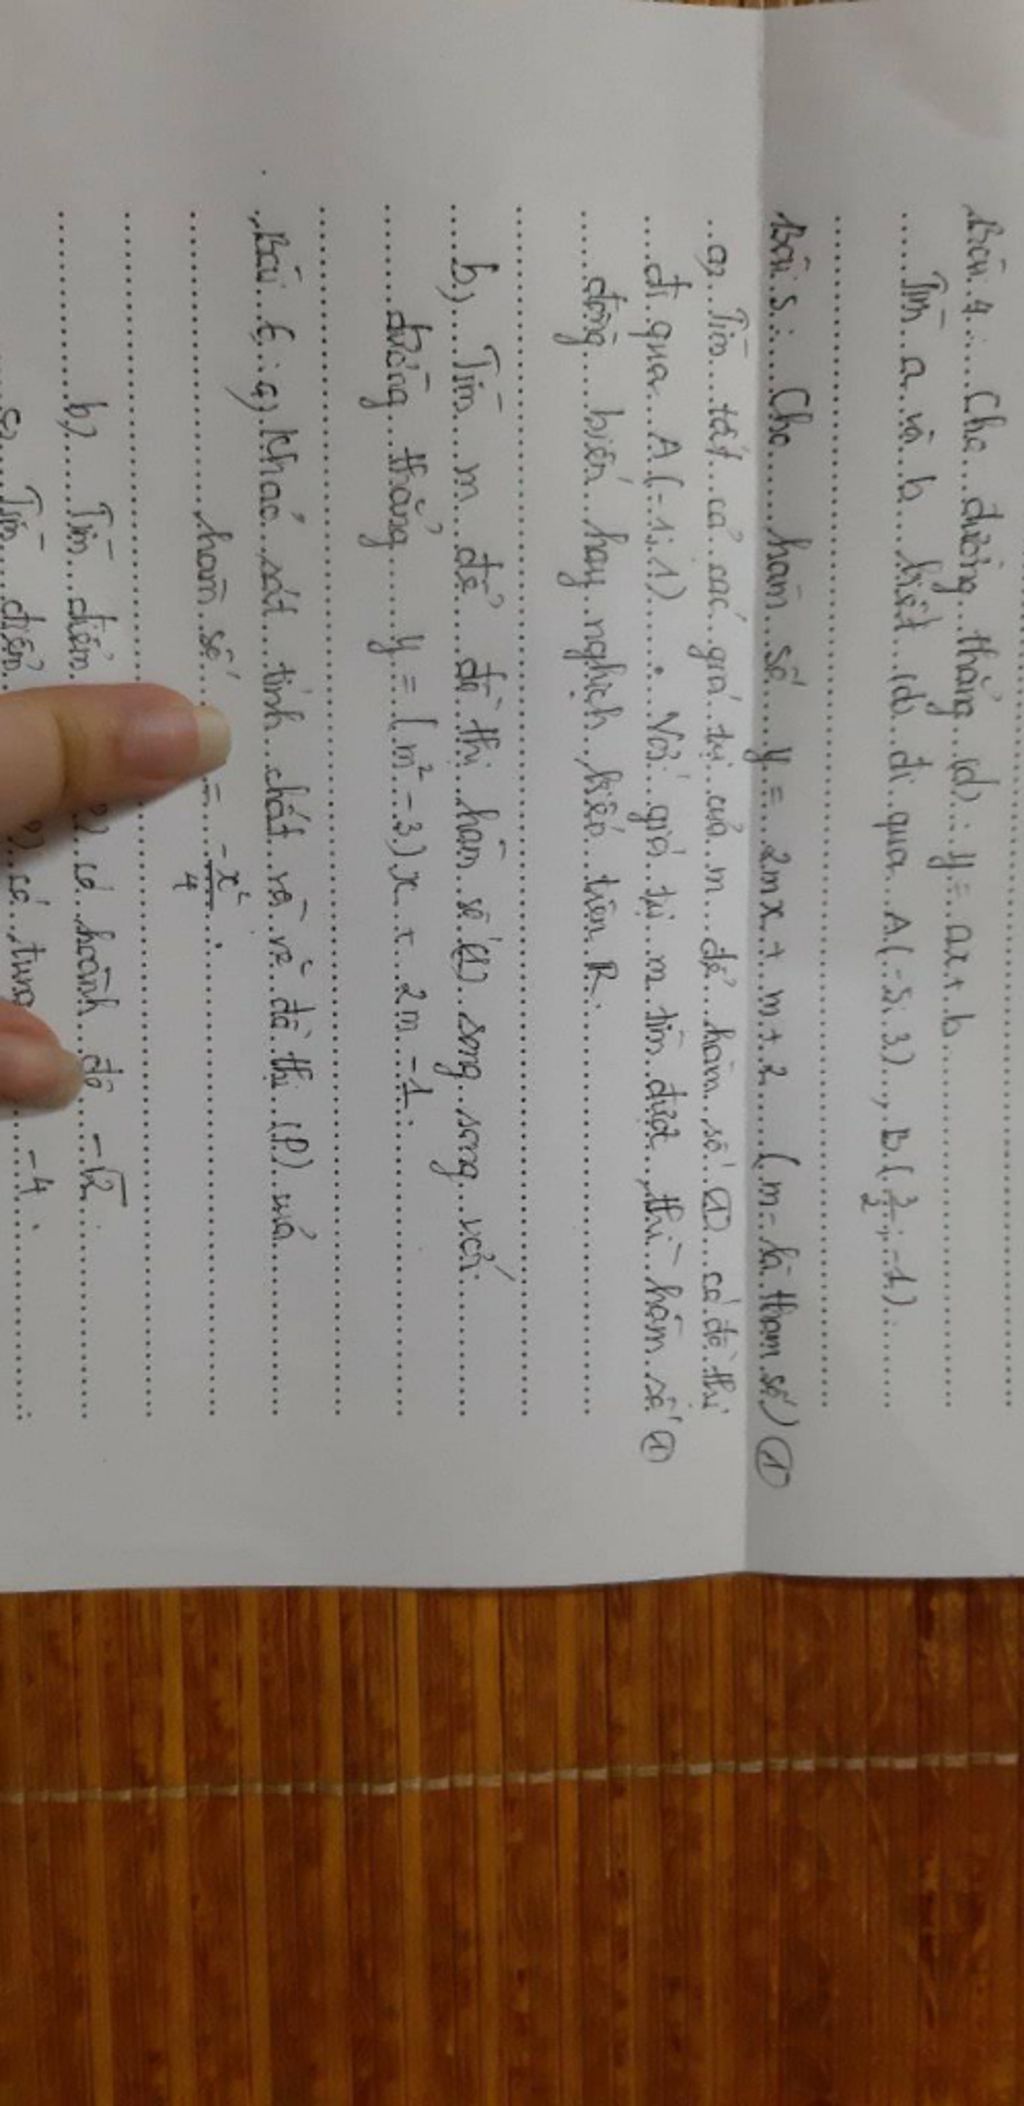 Bài 4: Cho đường thẳng (d): y = ax + b
Tìm a và b biết (d) đi qua A(-5; 3), B(3/2; -1)
Bài 5: Cho hàm số y = 2mx + m + 2 (m là tham số) ①
a, Tìm tất cả các giá trị của m để hàm số ① có đồ thị
đi qua A(-1; 1). Với giá trị m tìm được, thì hàm số ①
đồng biến hay nghịch biến trên R.
b) Tìm m để đồ thị hàm số (1) song song với
đường thẳng y = (m² - 3)x + 2m - 1.
Bài 6: a) Khảo sát tính chất và vẽ đồ thị (P) của
hàm số = -x²/4.
b) Tìm điểm có hoành độ -√2.
Tìm điểm có tung -4.